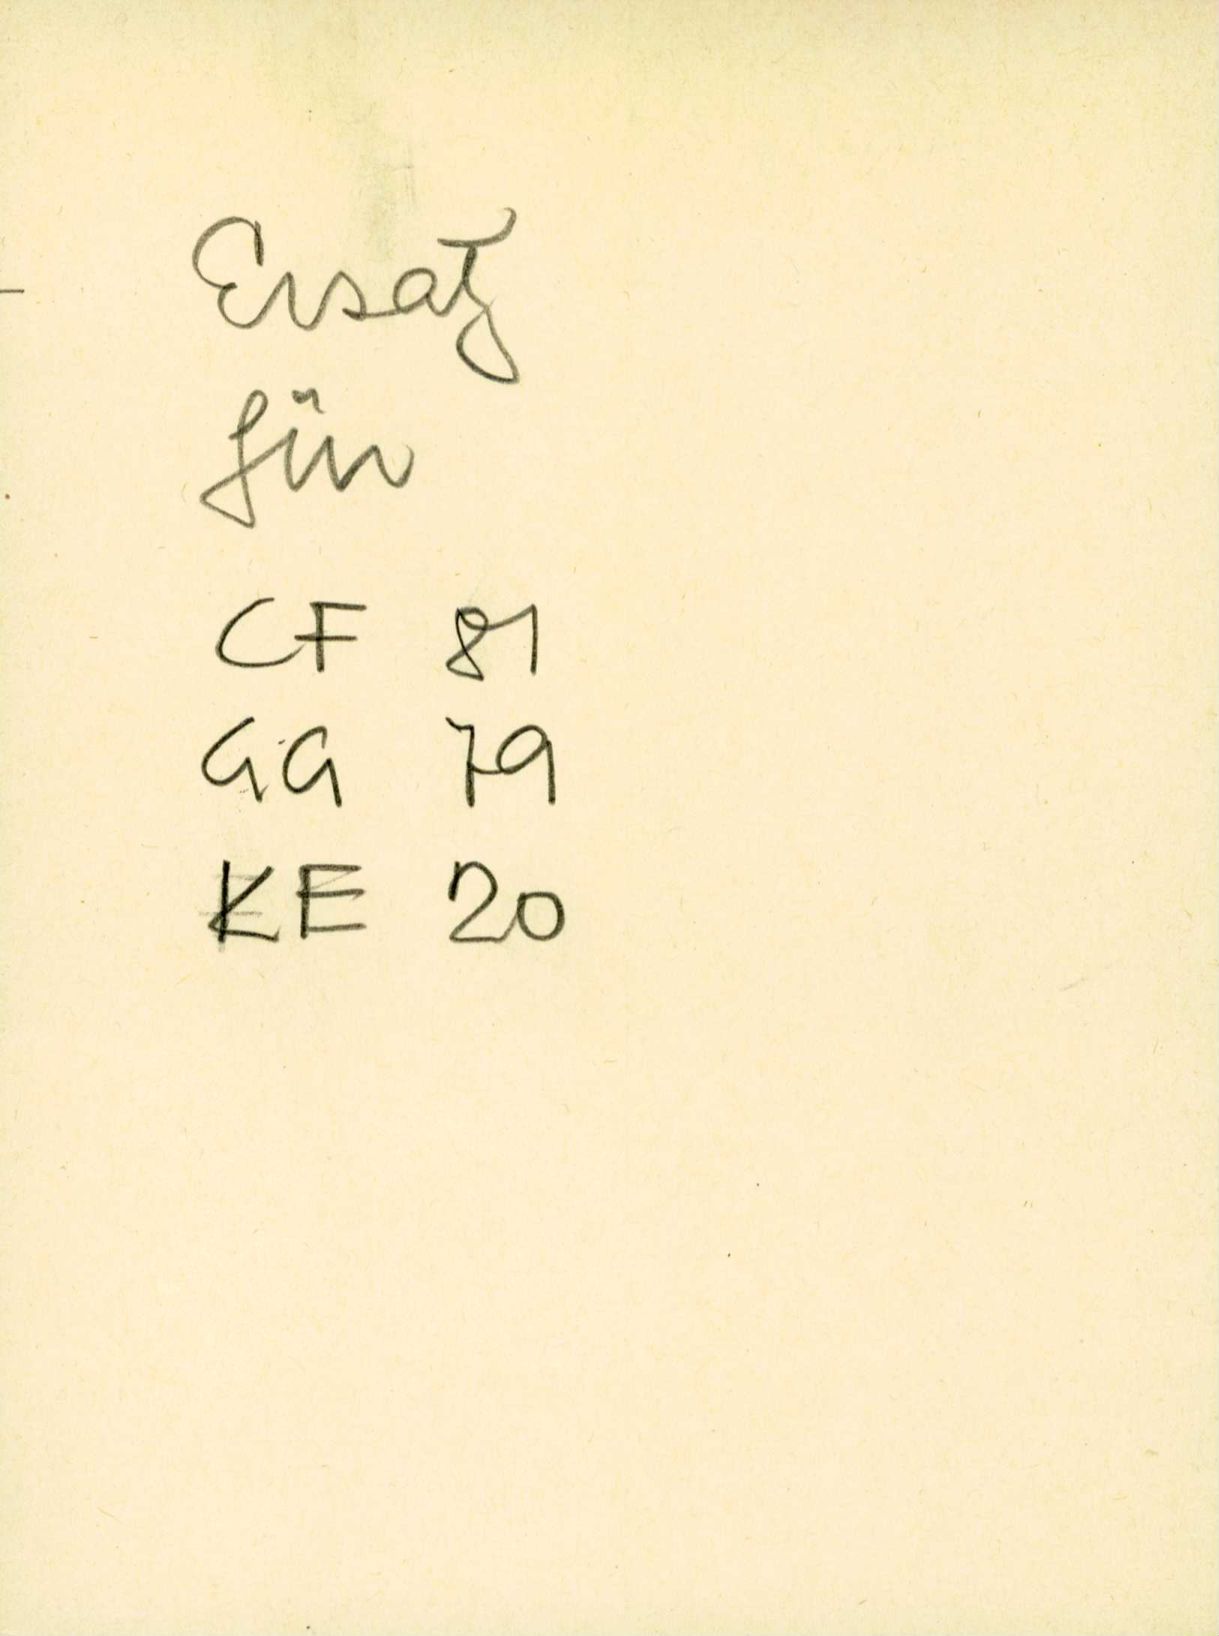 Ersatz
für
CF 81
GG 79
KE 20